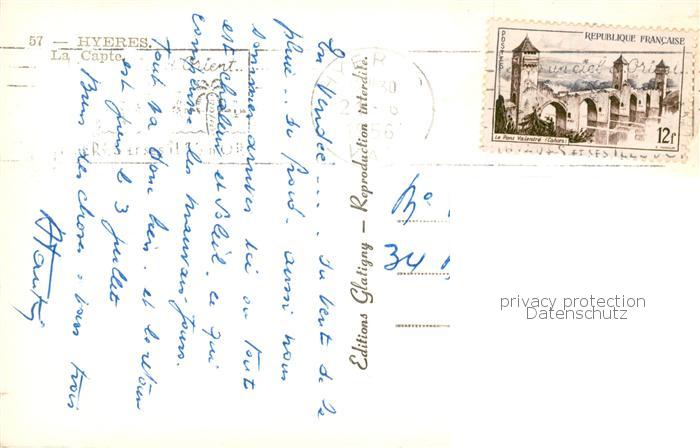 57 - HYERES.
La Capte.
En Vendée.... du vent de la
pluie.. du froid. aussi nous
sommes arrivés ici ou tout
est chaleur et soleil. ce qui
compense les mauvais jours.
Tout va donc bien. et le retour
est pour le 3 juillet
Bien des choses à vous trois
Editions Glatigny — Reproduction interdite.
POSTES
REPUBLIQUE FRANÇAISE
Le Pont Valentré (Cahors)
12f
34
privacy protection
Datenschutz